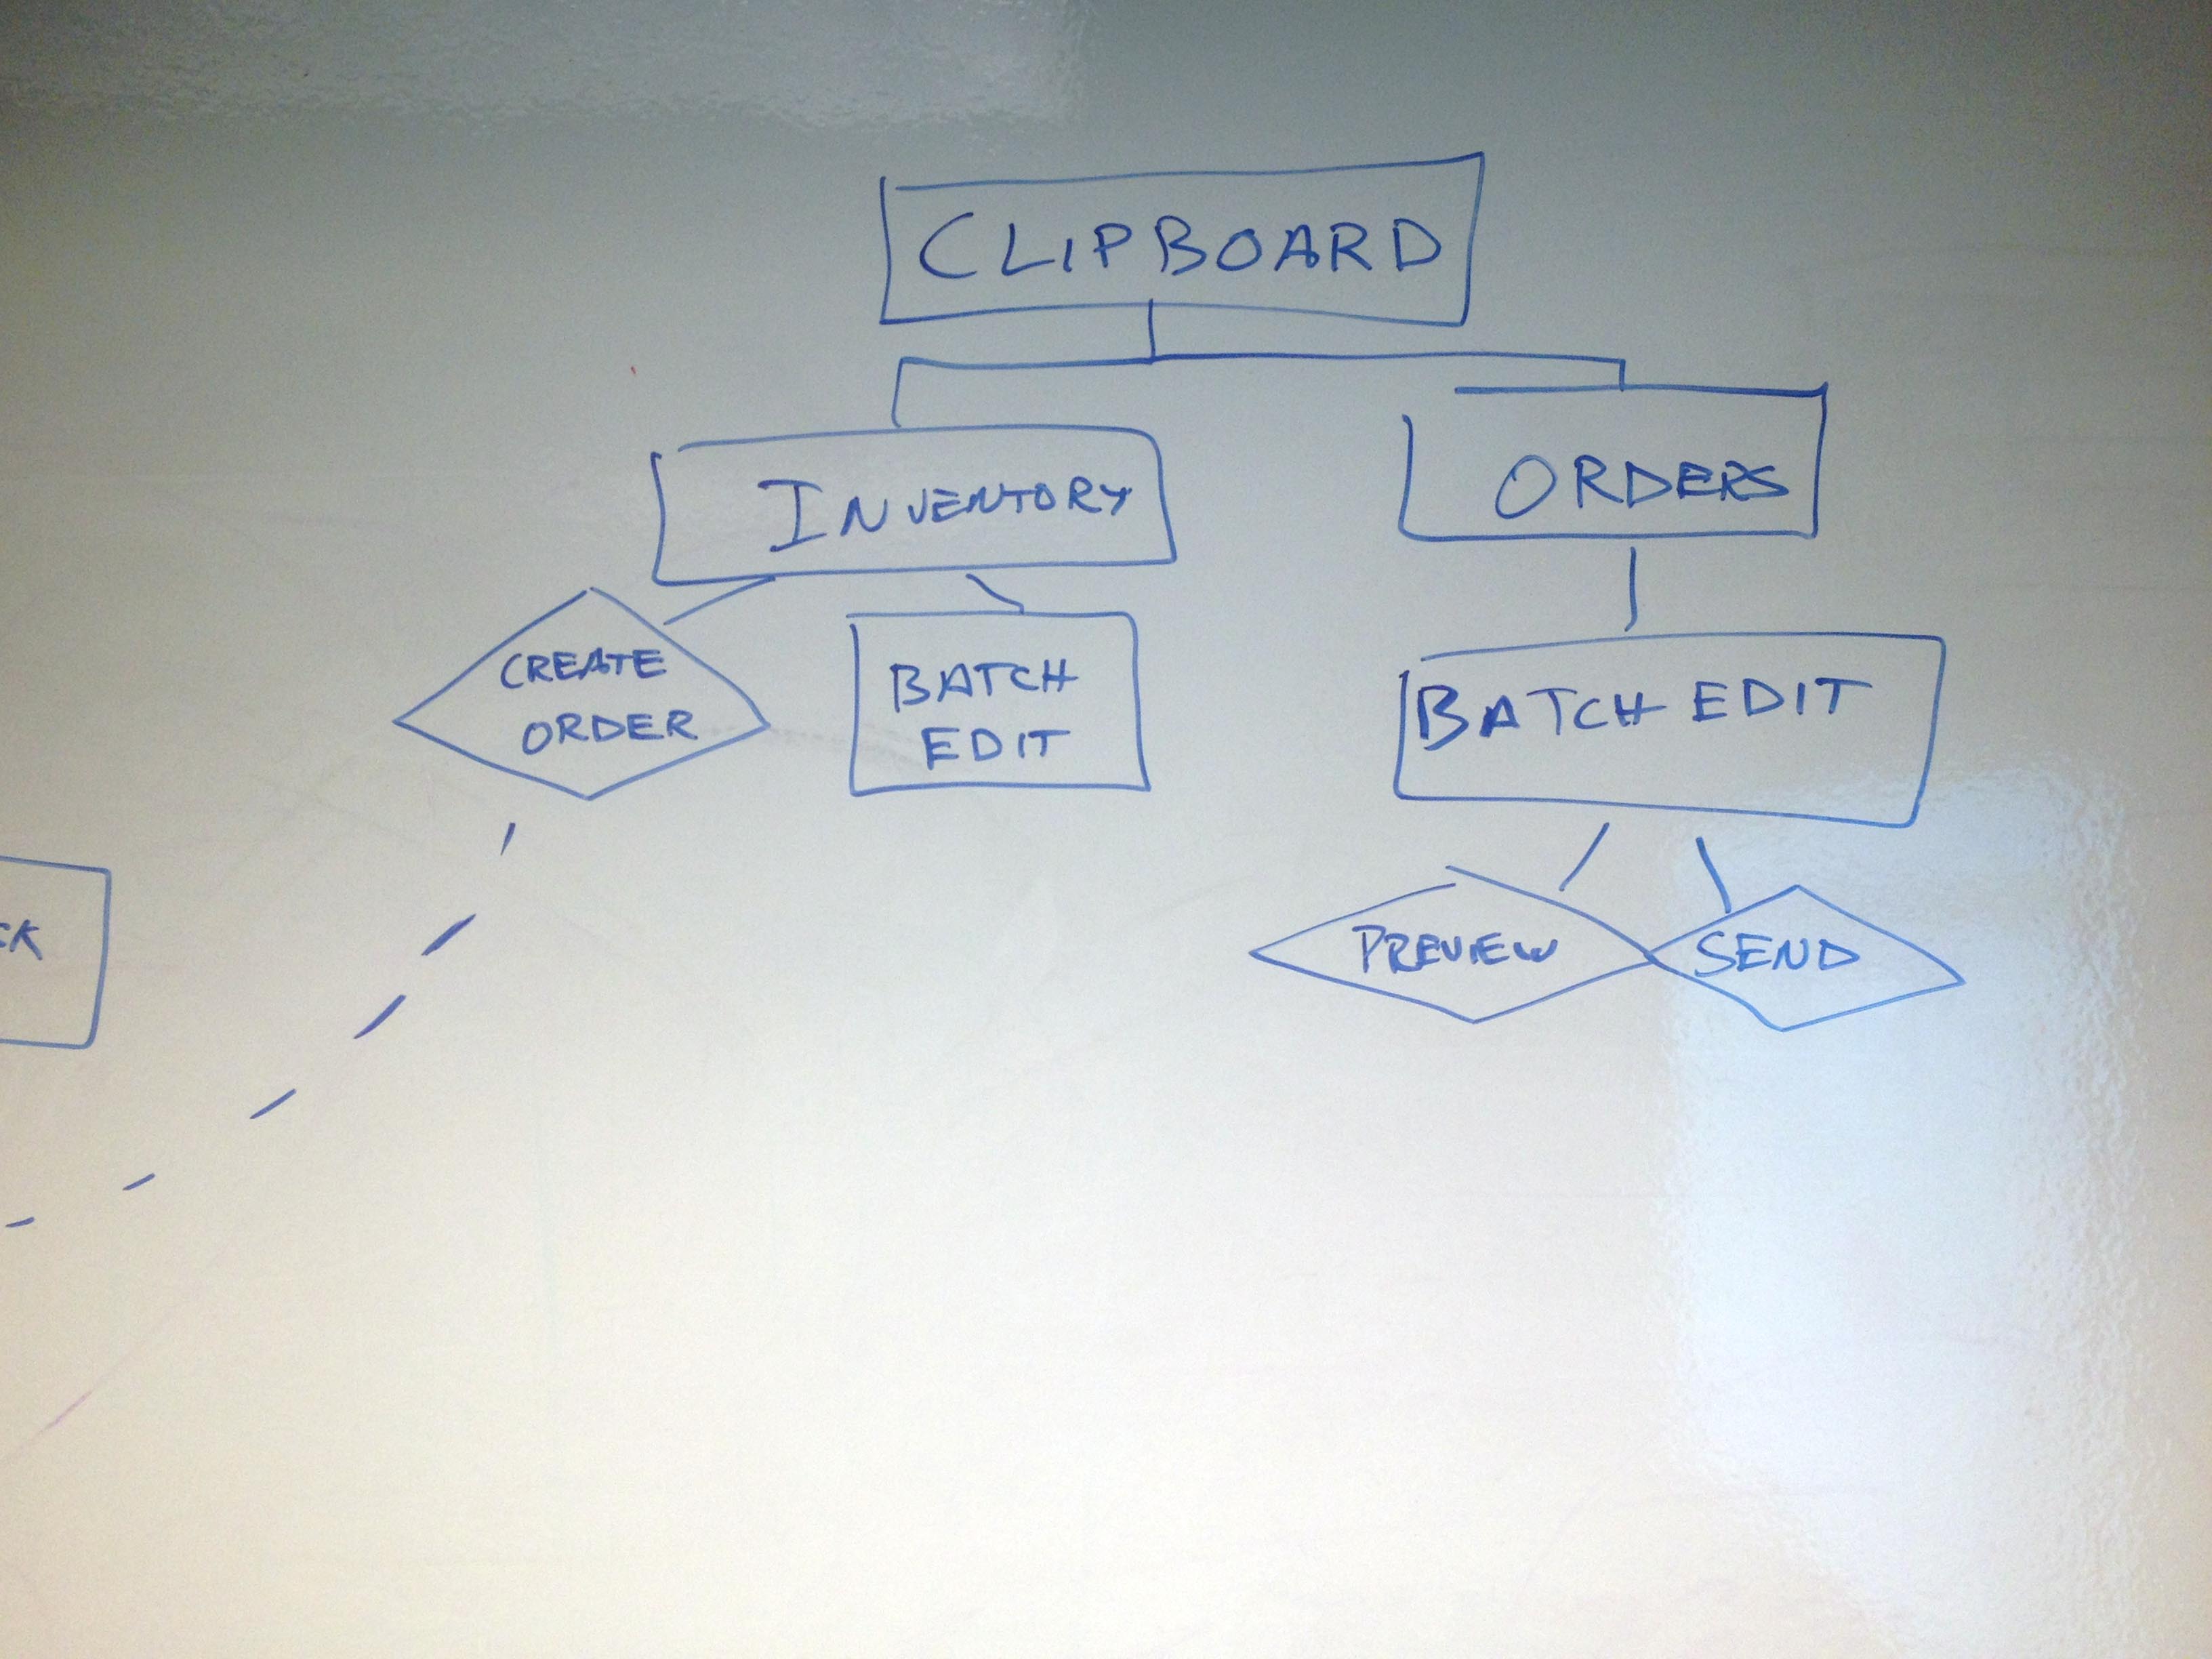 CLIPBOARD
INVENTORY
ORDERS
CREATE
ORDER
BATCH
EDIT
BATCH EDIT
PREVIEW
SEND